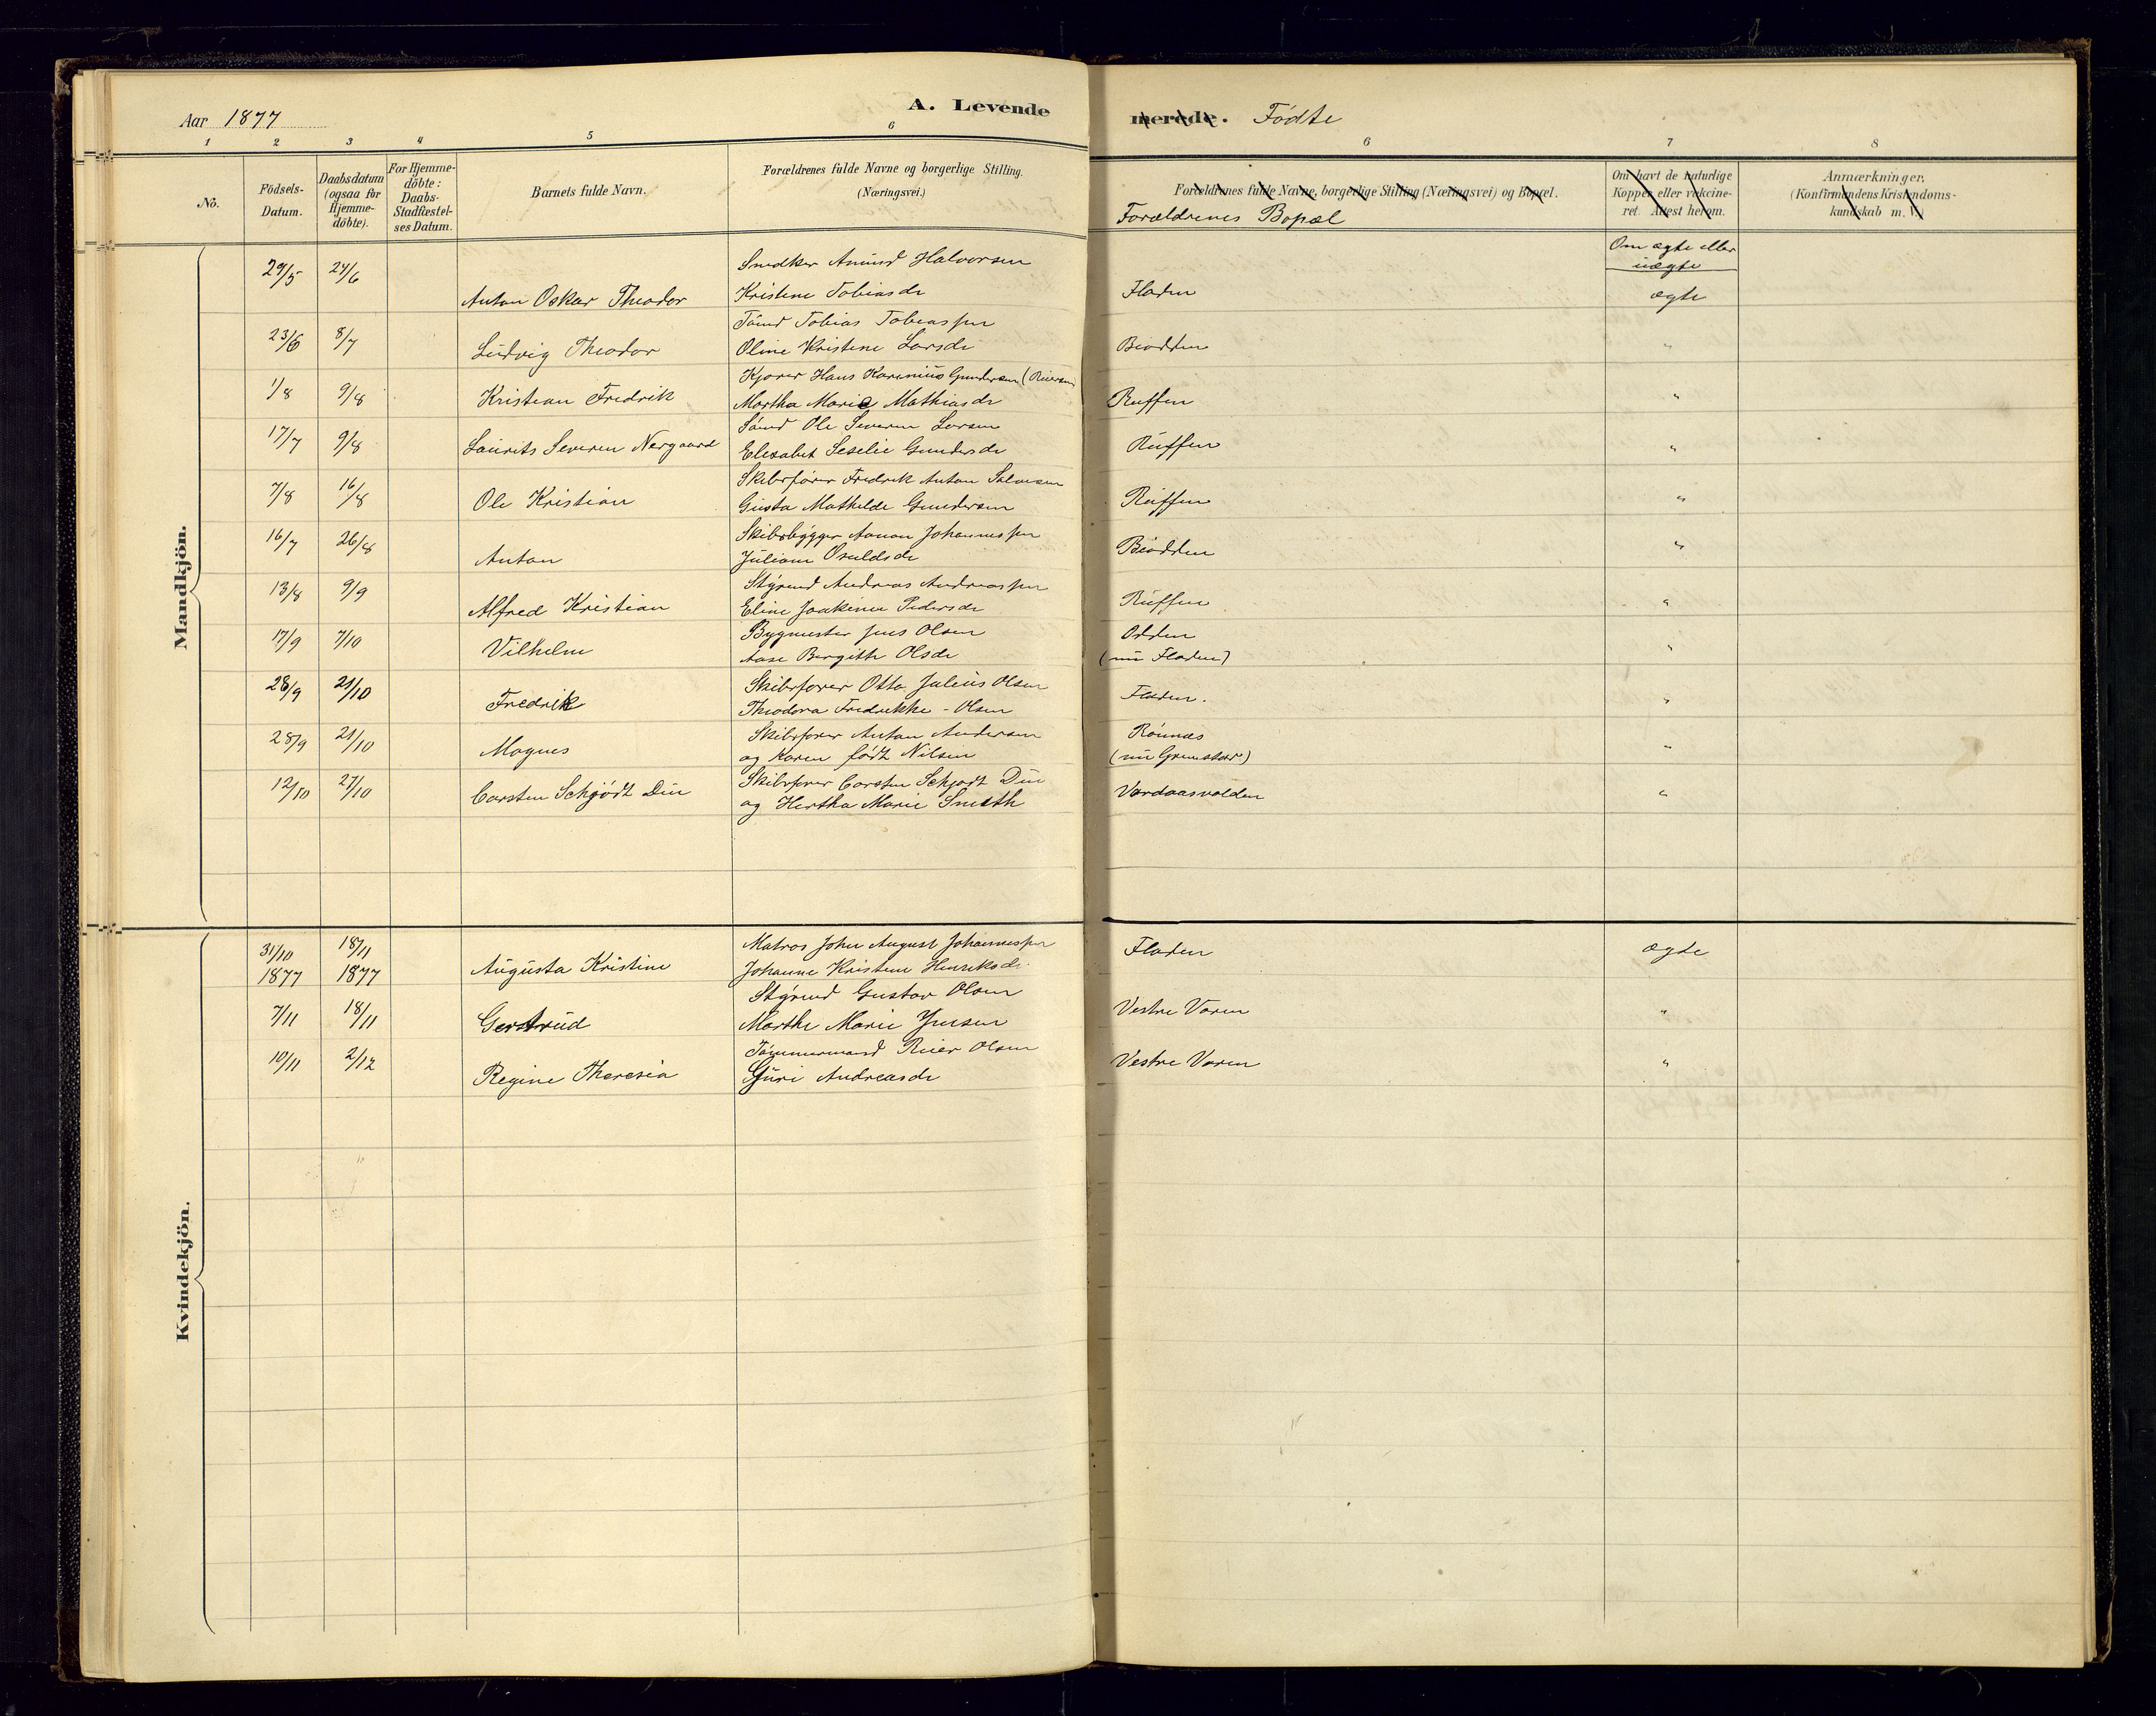 Aar 1877
A. Levende merede. Födte
1 2 3 4 5 6 6 7 8
No.
Födsels-Datum.
Daabsdatum (ogsaa for Hjemme-döbte).
For Hjemme-döbte: Daabs-Stadfæstel-ses Datum.
Barnets fulde Navn.
Forældrenes fulde Navne og borgerlige Stilling. (Næringsvei.)
Forældrenes fulde Navne, borgerlige Stilling (Næringsvei) og Bopæl.
Forældrenes Bopæl
Om havt de naturlige Kopper eller vakcine-ret. Attest herom.
Om ægte eller uægte
Anmærkninger, (Konfirmandens Kristendoms-kundskab m. V.)
Mandkjön.
29/5 24/6 Anton Oskar Theodor Snedker Amund Halvorsen
Kristine Tobiasdr Fladen ægte
23/6 8/7 Ludvig Theodor Tömd Tobias Tobiassen
Oline Kristine Larsdr Brodden "
1/8 9/8 Kristian Fredrik Kjører Hans Karinius Gundersen (Reiersen)
Martha Marie Mathiasdr Ruffen "
17/7 9/8 Laurits Severin Nergaard Sömd Ole Severin Larsen
Elezabet Seselie Gundersdr Ruffen "
7/8 16/8 Ole Kristian Skibsfører Fredrik Anton Salvesen
Gusta Mathilde Gundersen Ruffen "
16/7 26/8 Anton Skibsbygger Aanon Johannessen
Juliane Osuldsdr Brodden "
13/8 9/9 Alfred Kristian Stýrmd Andreas Andreassen
Eline Joakime Pedersdr Ruffen "
17/9 7/10 Vilhelm Bygmester Jens Olsen
Aase Bergitte Olsdr Odden (nu Fladen) "
28/9 21/10 Fredrik Skibsfører Otto Julius Olsen
Theodora Fredrikke - Olsen Fladen. "
28/9 21/10 Magnus Skibsfører Anton Andersen
og Karen född Nilsen Rönnes (nu Grimstad) "
12/10 27/10 Carsten Schjödt Due Skibsfører Carsten Schjødt Due
og Hertha Marie Smith Vardaasvolden "
Kvindekjön.
31/10 1877 18/11 1877 Augusta Kristine Matros John August Johannessen
Johanne Kristine Henriksdr Fladen ægte
7/11 18/11 Gerstrud Stýrmd Gustav Olsen
Marthe Marie Jensen Vestre Voren "
10/11 2/12 Regine Theresia Tömmermand Reier Olsen
Guri Andreasdr Vestre Voren "